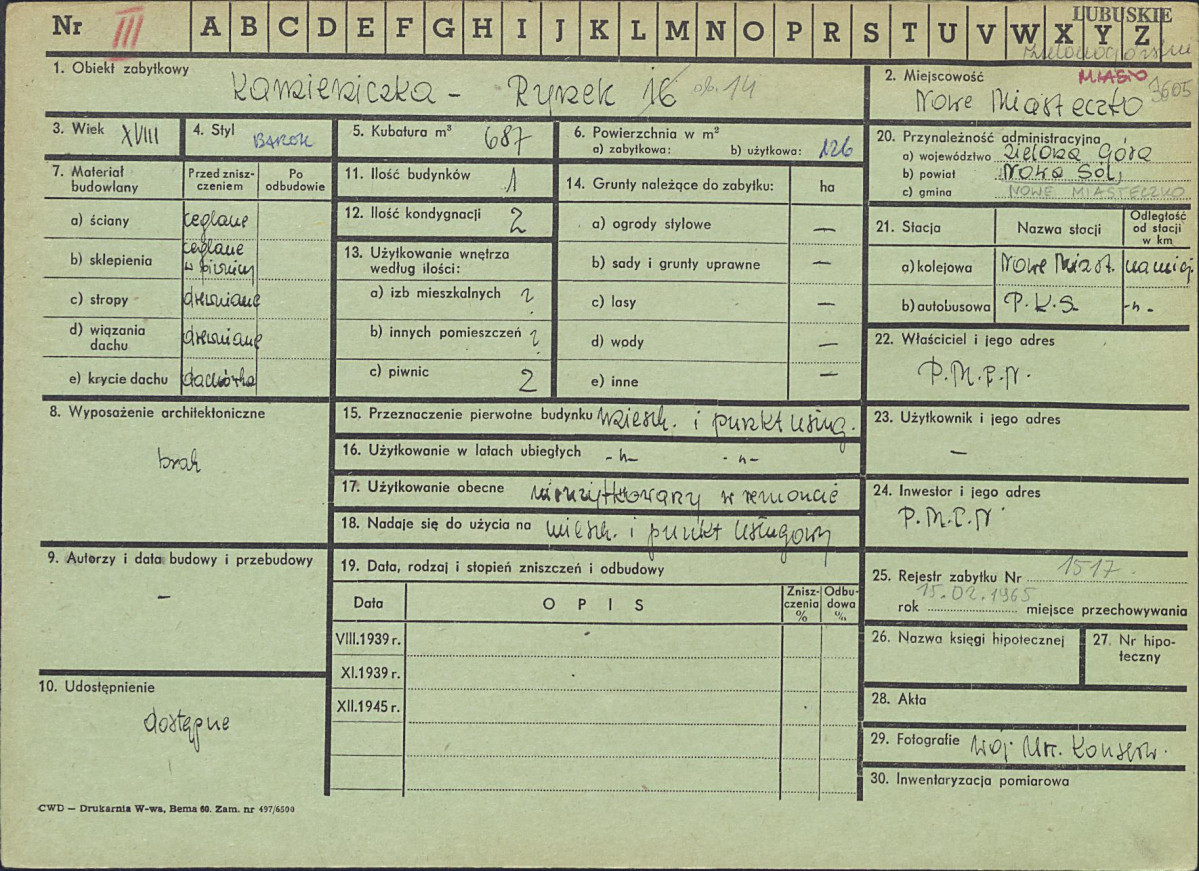 Nr III A B C D E F G H I J K L M N O P R S T U V W X Y Z
LUBUSKIE
1. Obiekt zabytkowy
Kamieniczka - Rynek 16 ob. 14
2. Miejscowość MIASTO 3605
Nowe Miasteczko
3. Wiek XVIII
4. Styl BAROK
5. Kubatura m³ 687
6. Powierzchnia w m²
a) zabytkowa: b) użytkowa: 126
7. Materiał budowlany
Przed znisz-
czeniem
Po
odbudowie
a) ściany ceglane
b) sklepienia ceglane
w piwnicy
c) stropy drewniane
d) wiązania
dachu drewniane
e) krycie dachu dachówka
8. Wyposażenie architektoniczne
brak
9. Autorzy i data budowy i przebudowy
-
10. Udostępnienie
dostępne
11. Ilość budynków 1
12. Ilość kondygnacji 2
13. Użytkowanie wnętrza
według ilości:
a) izb mieszkalnych ?
b) innych pomieszczeń ?
c) piwnic 2
14. Grunty należące do zabytku: ha
a) ogrody stylowe -
b) sady i grunty uprawne -
c) lasy -
d) wody -
e) inne -
15. Przeznaczenie pierwotne budynku miesz. i punkt usług.
16. Użytkowanie w latach ubiegłych -"- -"-
17. Użytkowanie obecne nieużytkowany w remoncie
18. Nadaje się do użycia na miesz. i punkt usługowy
19. Data, rodzaj i stopień zniszczeń i odbudowy
Data OPIS Znisz-
czenia
% Odbu-
dowa
%
VIII.1939 r.
XI.1939 r.
XII.1945 r.
20. Przynależność administracyjna
a) województwo Zielona Góra
b) powiat Nowa Sól
c) gmina NOWE MIASTECZKO
21. Stacja Nazwa stacji Odległość
od stacji
w km
a) kolejowa Nowe Miast. na miej.
b) autobusowa P.K.S. -"-
22. Właściciel i jego adres
P.M.R.N.
23. Użytkownik i jego adres
-
24. Inwestor i jego adres
P.M.R.N.
25. Rejestr zabytku Nr 1517
15.02.1965
rok miejsce przechowywania
26. Nazwa księgi hipotecznej
27. Nr hipo-
teczny
28. Akta
29. Fotografie Woj. Urz. Konserw.
30. Inwentaryzacja pomiarowa
CWD — Drukarnia W-wa, Bema 60. Zam. nr 497/6500